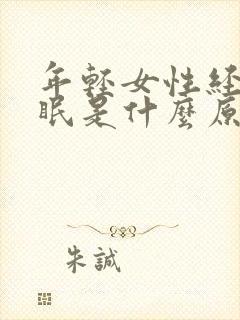 年輕女性經
眠是什麼原
朱誠